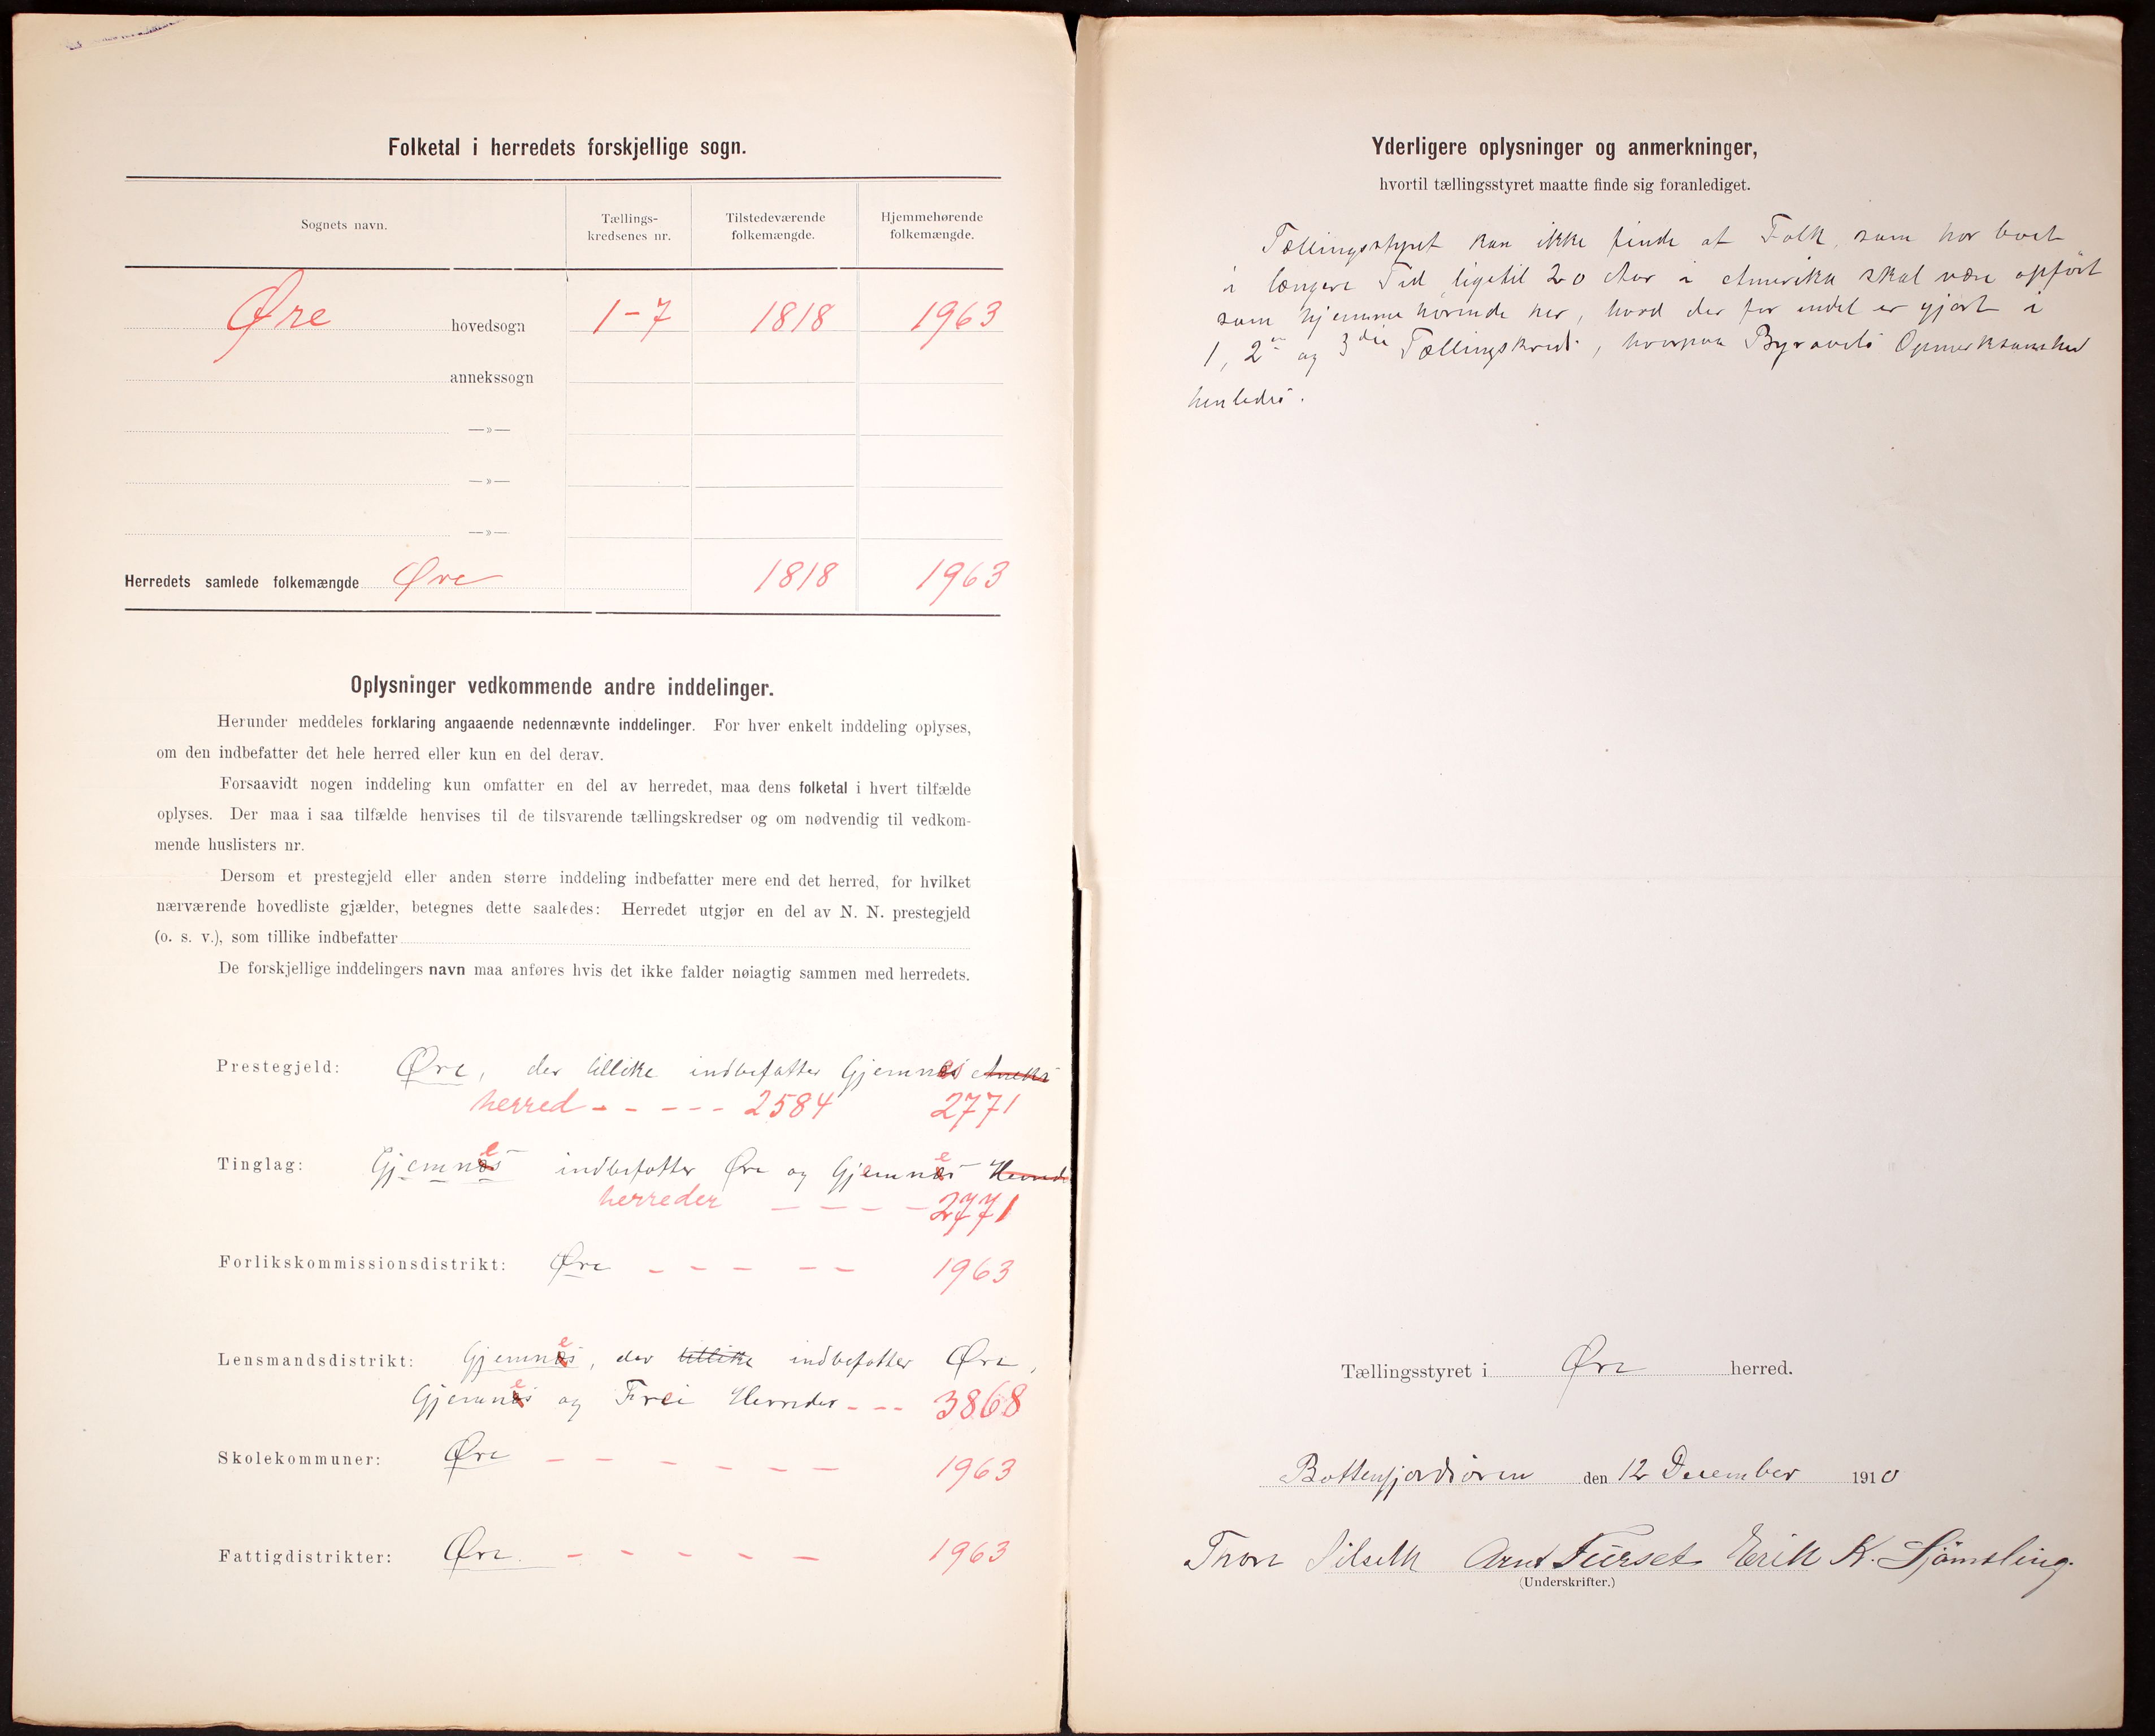 Folketal i herredets forskjellige sogn.
Sognets navn. Tællings- kredsenes nr. Tilstedeværende folkemængde. Hjemmehørende folkemængde.
Øre hovedsogn 1-7 1818 1963
annekssogn
—»—
—»—
—»—
Herredets samlede folkemængde Øre 1818 1963
Oplysninger vedkommende andre inddelinger.
Herunder meddeles forklaring angaaende nedennævnte inddelinger. For hver enkelt inddeling oplyses,
om den indbefatter det hele herred eller kun en del derav.
Forsaavidt nogen inddeling kun omfatter en del av herredet, maa dens folketal i hvert tilfælde
oplyses. Der maa i saa tilfælde henvises til de tilsvarende tællingskredser og om nødvendig til vedkom-
mende huslisters nr.
Dersom et prestegjeld eller anden større inddeling indbefatter mere end det herred, for hvilket
nærværende hovedliste gjælder, betegnes dette saaledes: Herredet utgjør en del av N. N. prestegjeld
(o. s. v.), som tillike indbefatter
De forskjellige inddelingers navn maa anføres hvis det ikke falder nøiagtig sammen med herredets.
Prestegjeld: Øre, der tillike indbefatter Gjemnes Anneks
herred - - - - - 2584 2771
Tinglag: Gjemnes indbefatter Øre og Gjemnes Herred
herreder - - - - 2771
Forlikskommissionsdistrikt: Øre - - - - - 1963
Lensmandsdistrikt: Gjemnes, der tillike indbefatter Øre,
Gjemnes og Frei Herreder - - - 3868
Skolekommuner: Øre - - - - - - 1963
Fattigdistrikter: Øre. - - - - - 1963
Yderligere oplysninger og anmerkninger,
hvortil tællingsstyret maatte finde sig foranlediget.
Tællingsstyret kan ikke finde at Folk, som har boet
i længere Tid ligetil 20 Aar i Amerika skal være opført
som hjemmehørende her, hvad der for endel er gjort i
1, 2en og 3die Tællingskreds, hvorpaa Byraaets Opmerksomhed
henledes.
Tællingsstyret i Øre herred.
Battenfjordsøren den 12 December 1910
Thore Silseth Arnt Furset Erik K. Sjømæling.
(Underskrifter.)